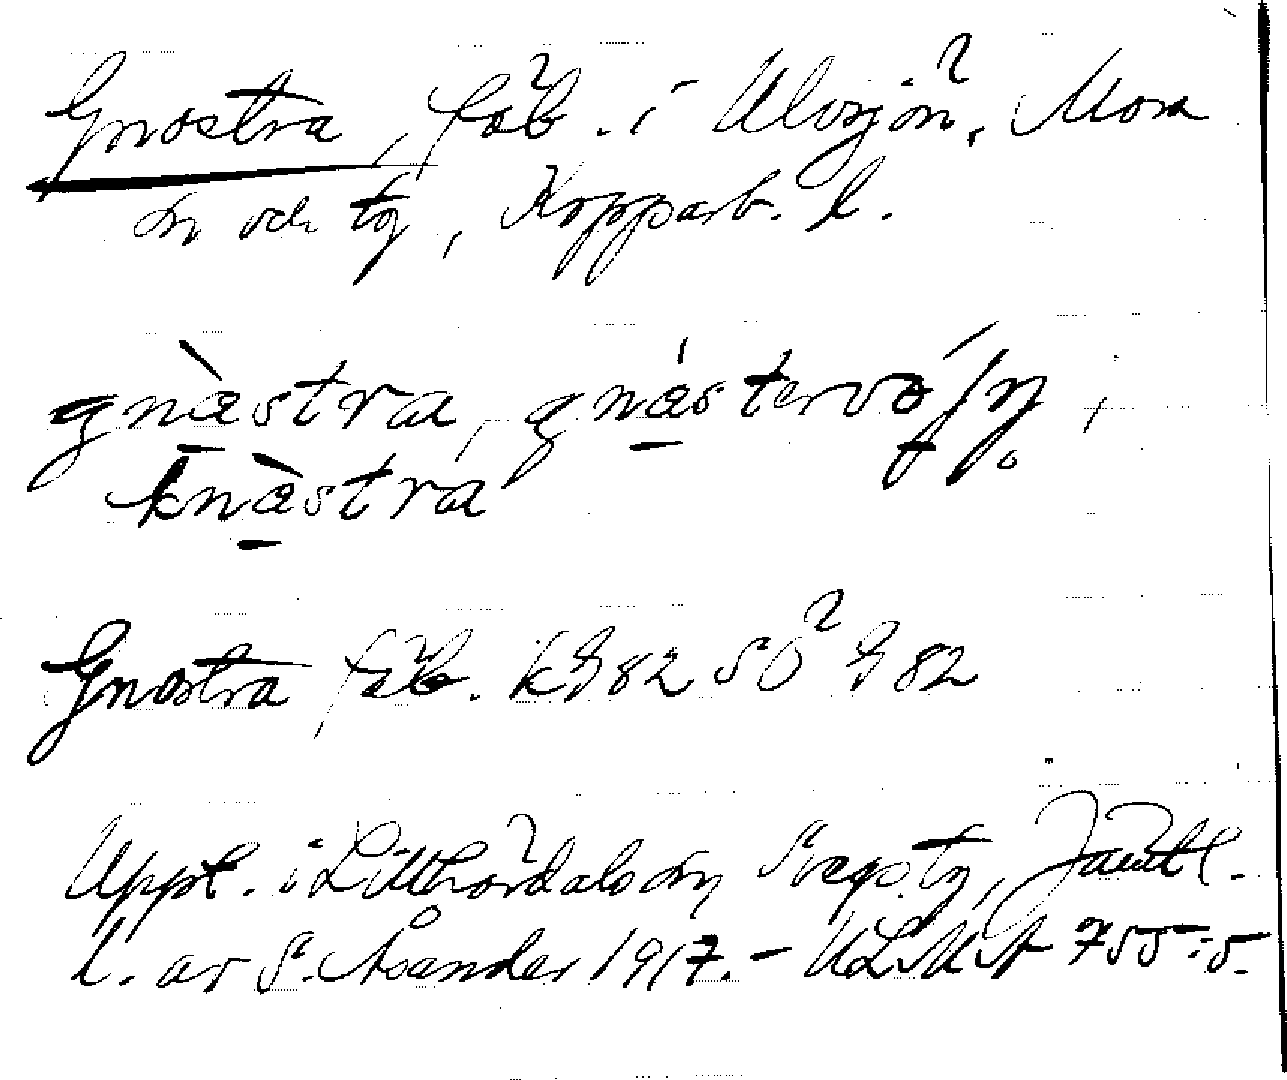 Gnostra, fäb. i Alvsjön, Mora
sn och tg, Kopparb. l.
gnæ̀stra, gnástervó
knæ̀stra
Gnostra fäb. kB 82 SÖ B 82
Uppt. i Lillhärdals sn, Svegs tg, Jämtl.
l. av S. Åsander 1917. – ULMA 755:5.